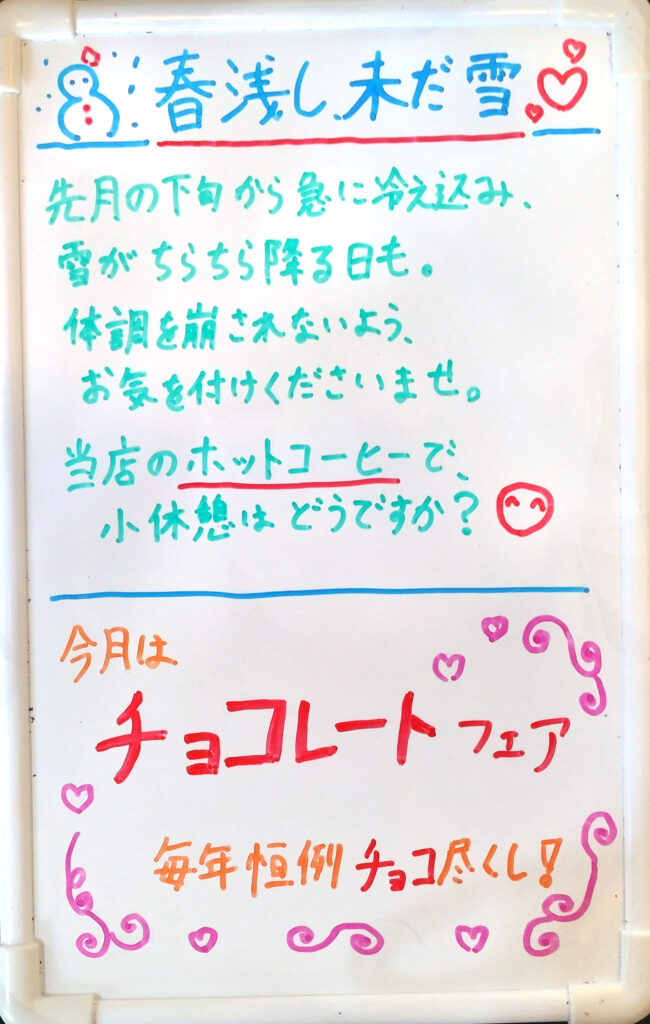 春浅し、未だ雪
先月の下旬から急に冷え込み、
雪がちらちら降る日も。
体調を崩されないよう、
お気を付けくださいませ。
当店のホットコーヒーで、
小休憩はどうですか？
今月は
チョコレートフェア
毎年恒例チョコ尽くし！